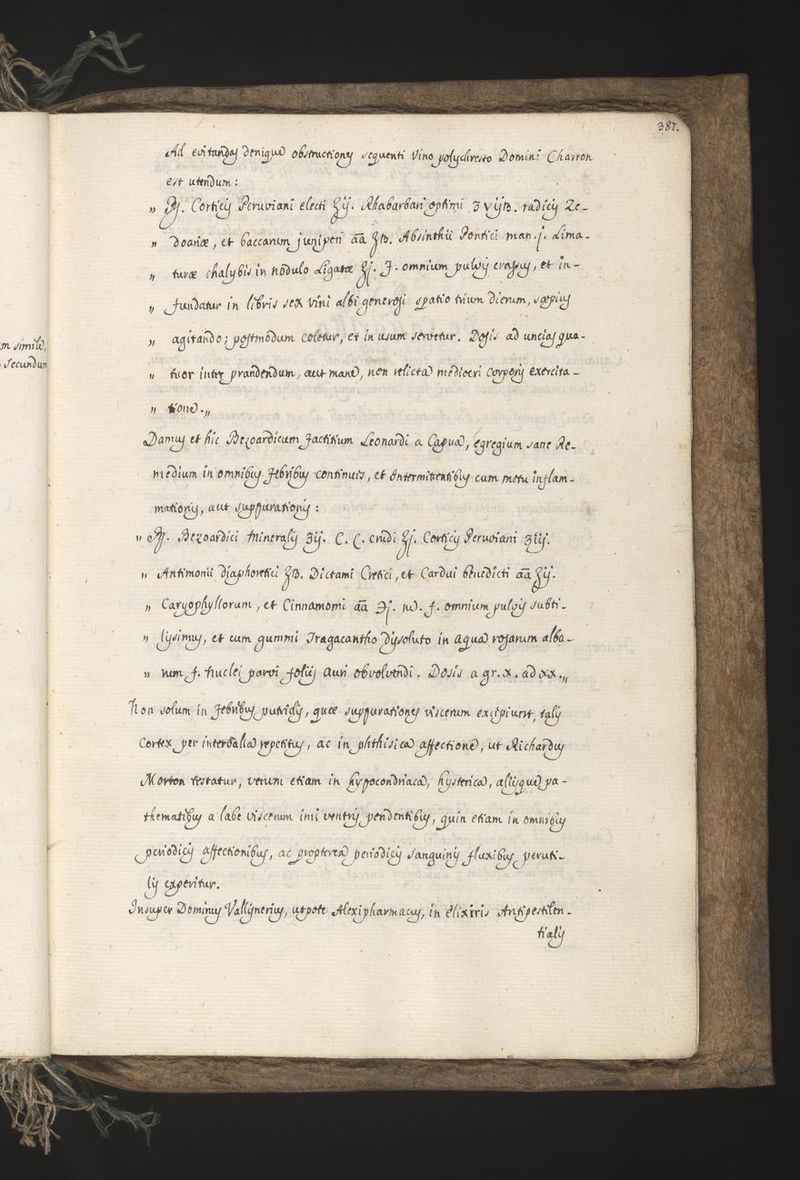 387.
Ad evitandas denique obstructiones sequenti Vino polychresto Domini Charron
est utendum:
„ ℞. Corticis Peruviani electi ℥ij. Rhabarbari optimi ʒ vijß. radicis Ze-
„ doariæ, et baccarum juniperi āā ℥ß. Absinthii Pontici man. j. Lima-
„ turæ chalybis in nodulo Ligatæ ℥j. F. omnium pulvis crassus, et in-
„ fundatur in libris sex vini albi generosi spatio trium dierum, sæpius
„ agitando; postmodum coletur, et in usum servetur. Dosis ad uncias qua-
„ tuor inter prandendum, aut mane, non relicta mediocri Corporis exercita-
„ tione.„
m simile,
secundum
Damus et hic Bezoardicum factitium Leonardi a Capua, egregium sane Re-
medium in omnibus febribus continuis, et Intermittentibus cum metu inflam-
mationis, aut suppurationis:
„ ℞. Bezoardici Mineralis ʒij. C. C. crudi ℥j. Corticis Peruviani ʒiij.
„ Antimonii diaphoretici ℥ß. Dictami Cretici, et Cardui benedicti āā ʒij.
„ Caryophyllorum, et Cinnamomi āā ℈j. m. f. omnium pulvis subti-
„ lissimus, et cum gummi Tragacantho dissoluto in aqua rosarum alba-
„ rum f. nuclei parvi foliis auri obvolvendi. Dosis a gr. x. ad xx.„
Non solum in febribus putridis, quæ suppurationes viscerum excipiunt, talis
Cortex per intervalla repetitus, ac in phthisica affectione, ut Richardus
Morton testatur, verum etiam in hypocondriaca, hysterica, aliisque pa-
thematibus a labe viscerum imi ventris pendentibus, quin etiam in omnibus
periodicis affectionibus, ac propterea periodicis sanguinis fluxibus peruti-
lis experitur.
Insuper Dominus Vallisnerius, utpote Alexipharmacus, in elixiris Antipestilen-
tialis